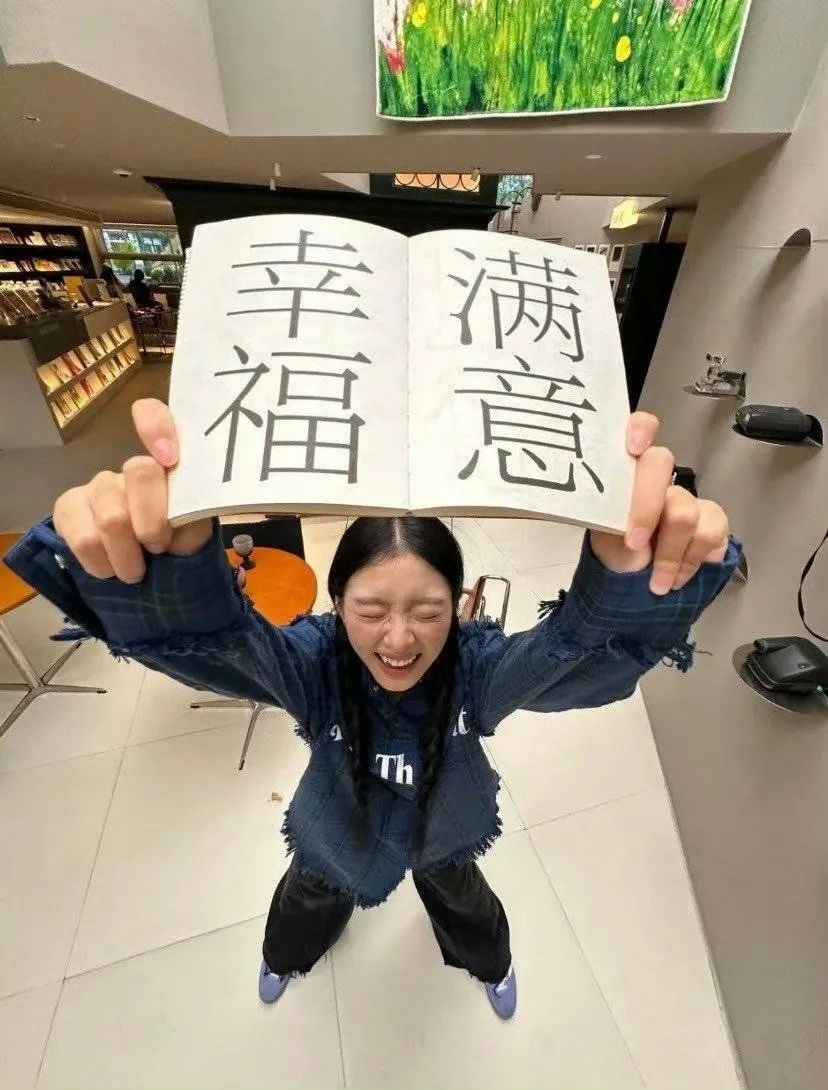 幸福
满意
Th